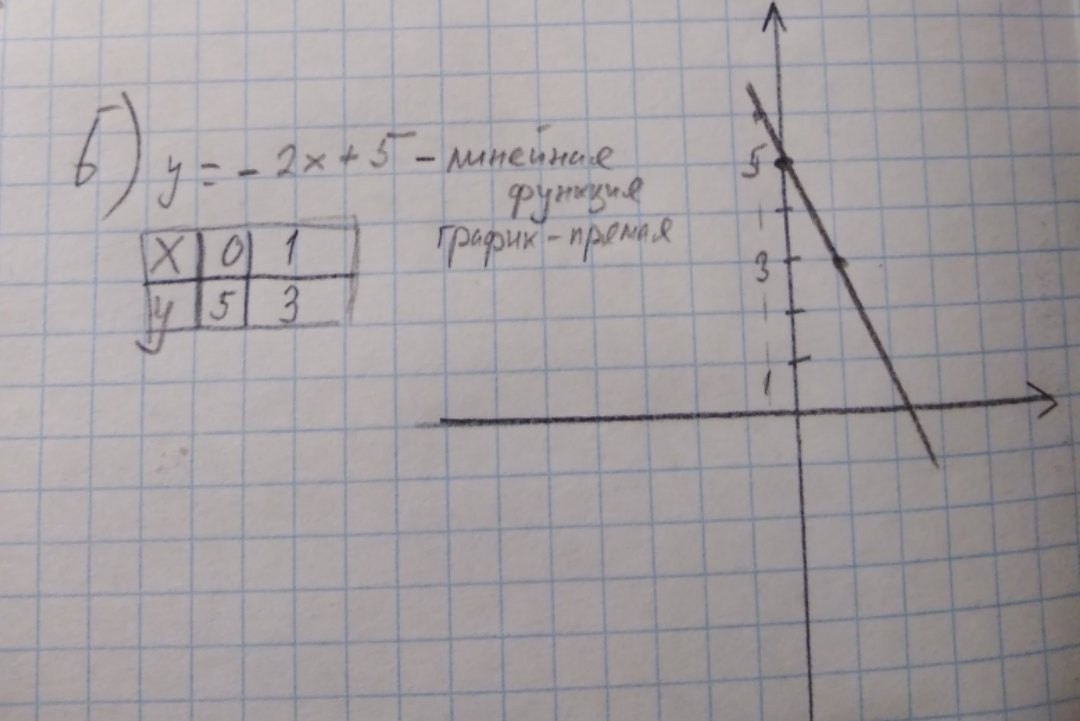 б) y = - 2x + 5 - линейная
функция
график - прямая
x 0 1
y 5 3
5
3
1